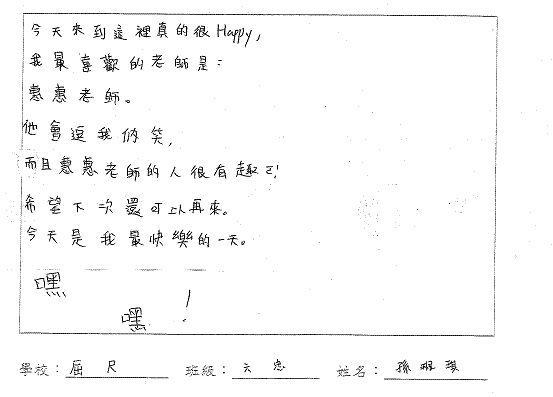 今天來到這裡真的很Happy,
我最喜歡的老師是:
惠惠老師。
他會逗我們笑,
而且惠惠老師的人很有趣ㄛ!
希望下次還可以再來。
今天是我最快樂的一天。
嘿
嘿!
學校:屈尺 班級:六忠 姓名:孫